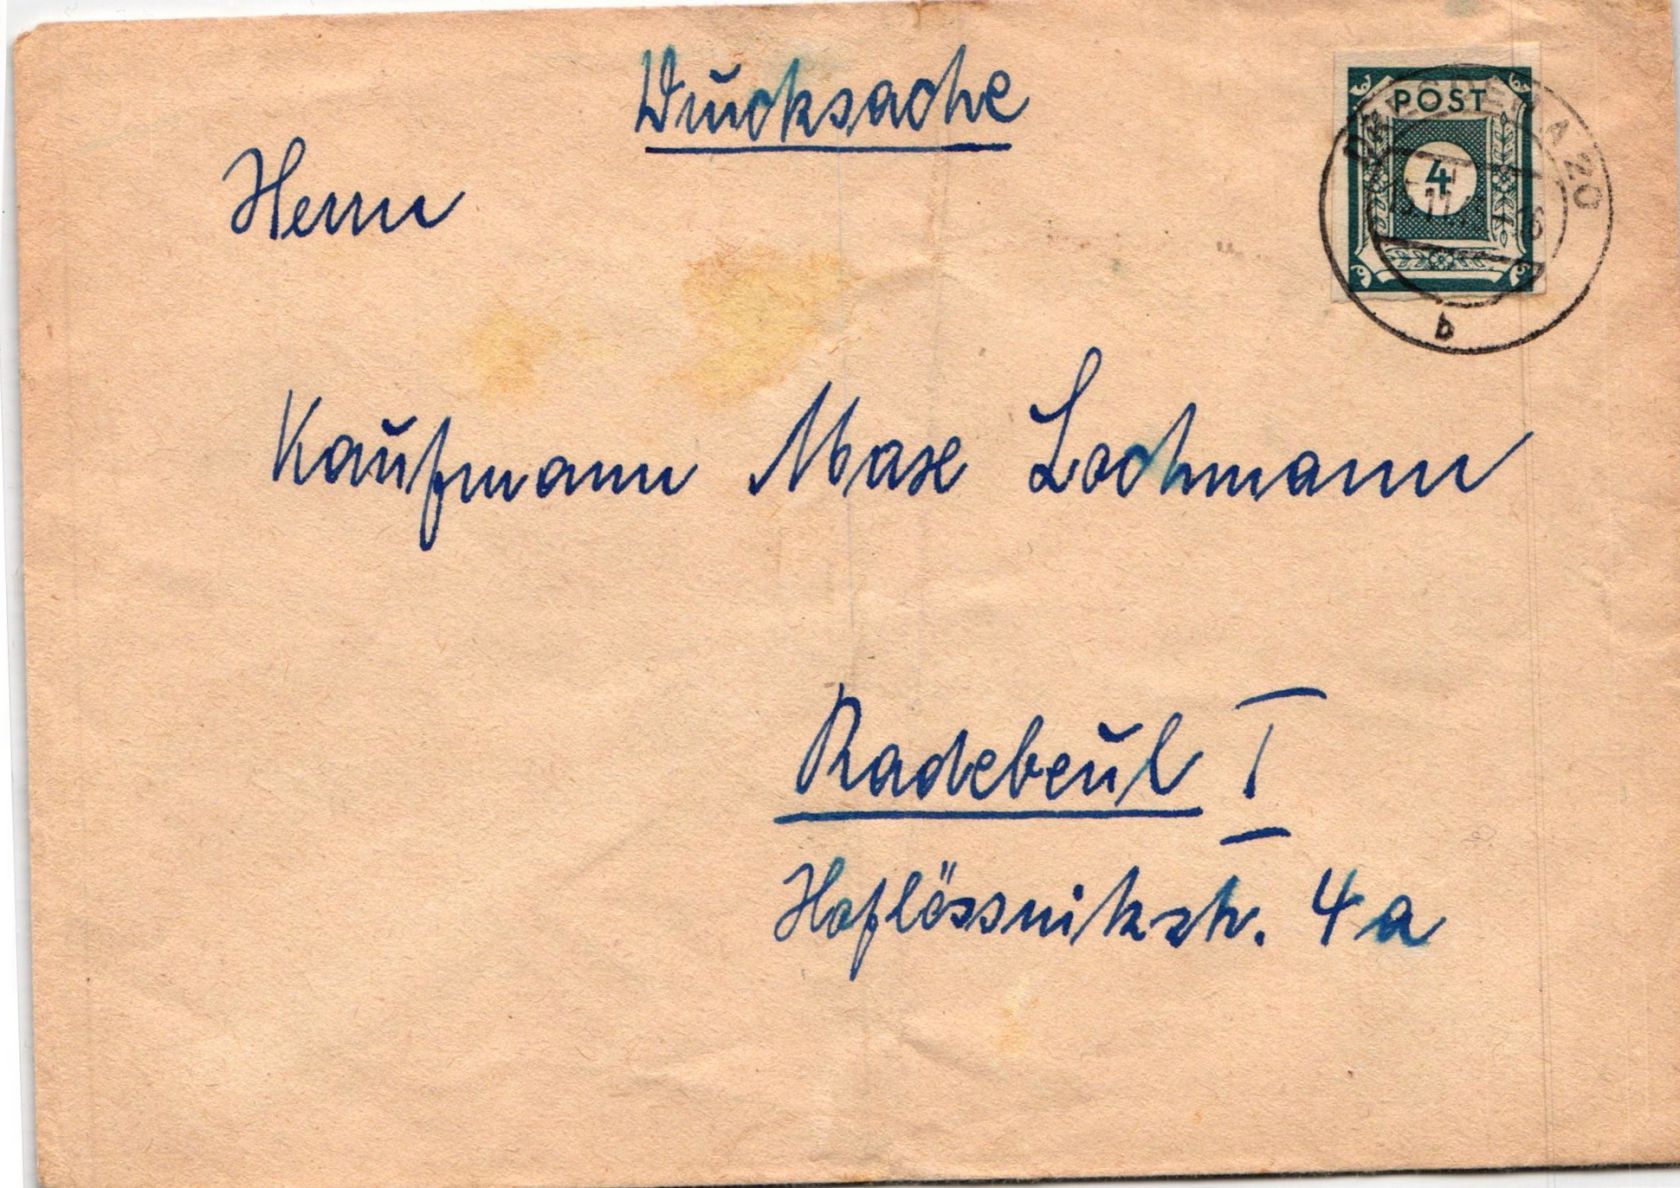 Drucksache
Herrn
Kaufmann Max Lochmann
Radebeul I
Hoflössnitzstr. 4a
POST
4
DRESDEN A 20
b